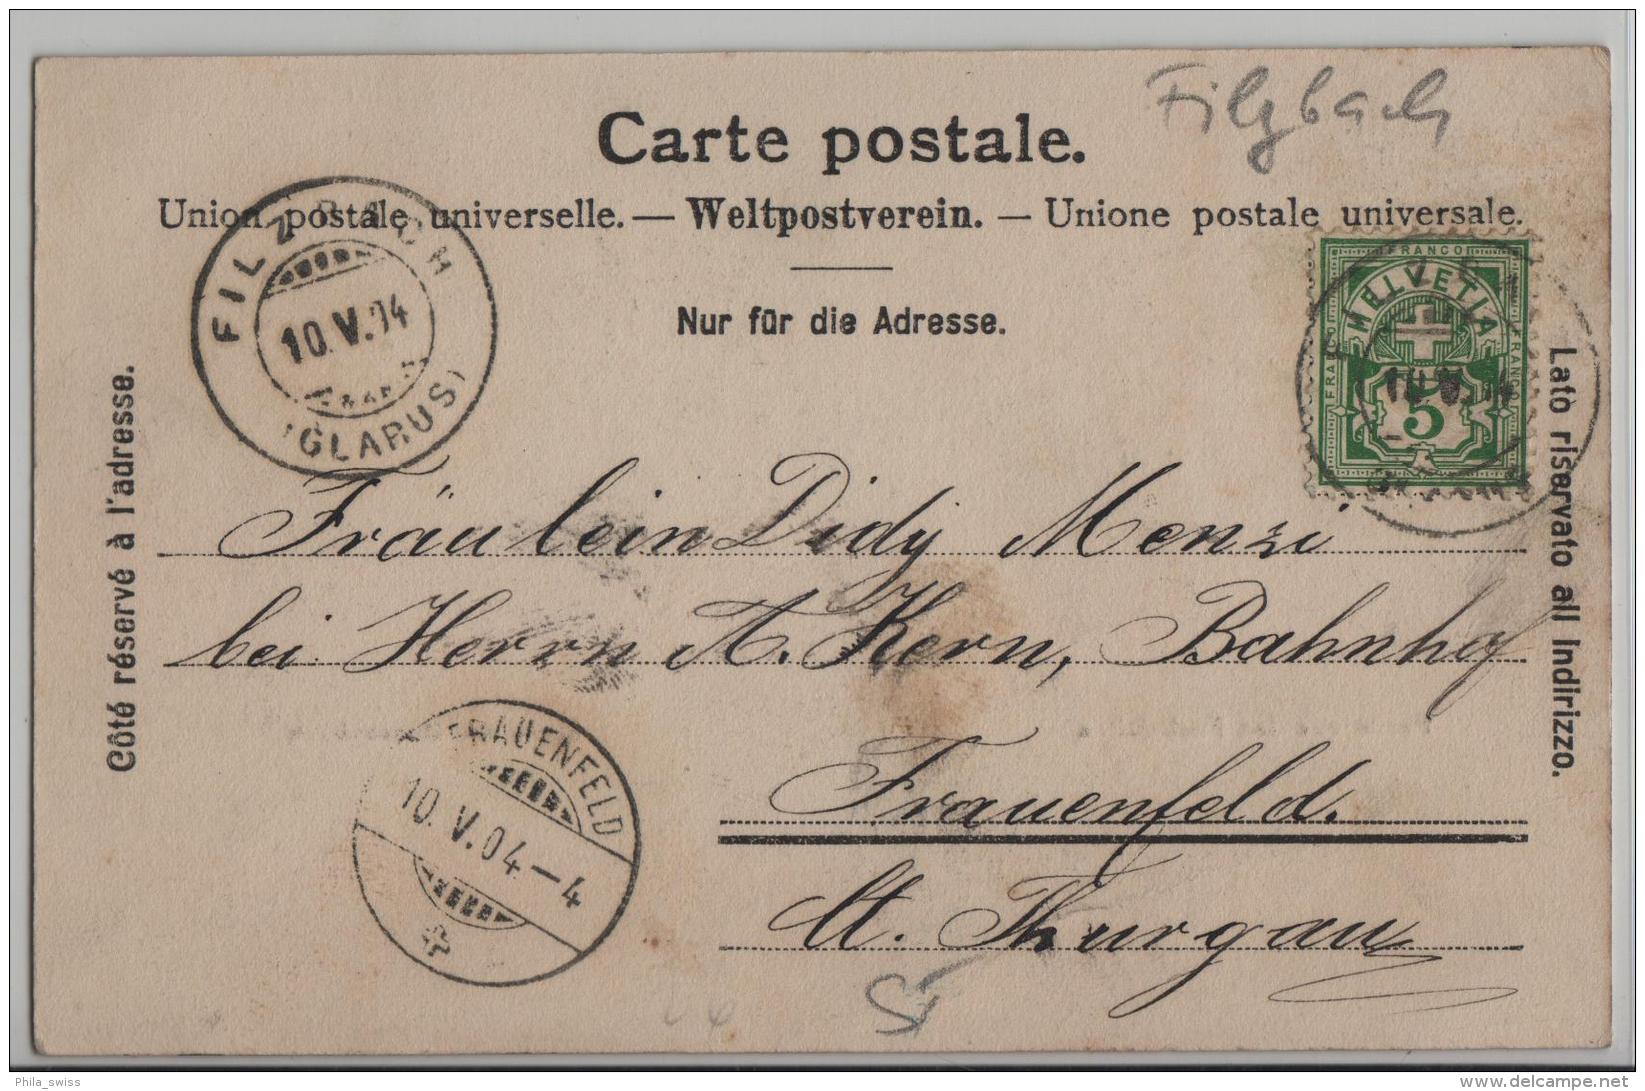 Filzbach
Carte postale.
Union postale universelle. — Weltpostverein. — Unione postale universale.
Nur für die Adresse.
Côté réservé à l'adresse.
Lato riservato all Indirizzo.
FILZBACH
10.V.04
(GLARUS)
FRANCO
HELVETIA
FRANCO
FRANCO
5
10.V.04
Fräulein Didy Menzi
bei Herrn A. Kern, Bahnhof
Frauenfeld.
Ct. Thurgau
FRAUENFELD
10.V.04-4
Phila_swiss
delcampe.net